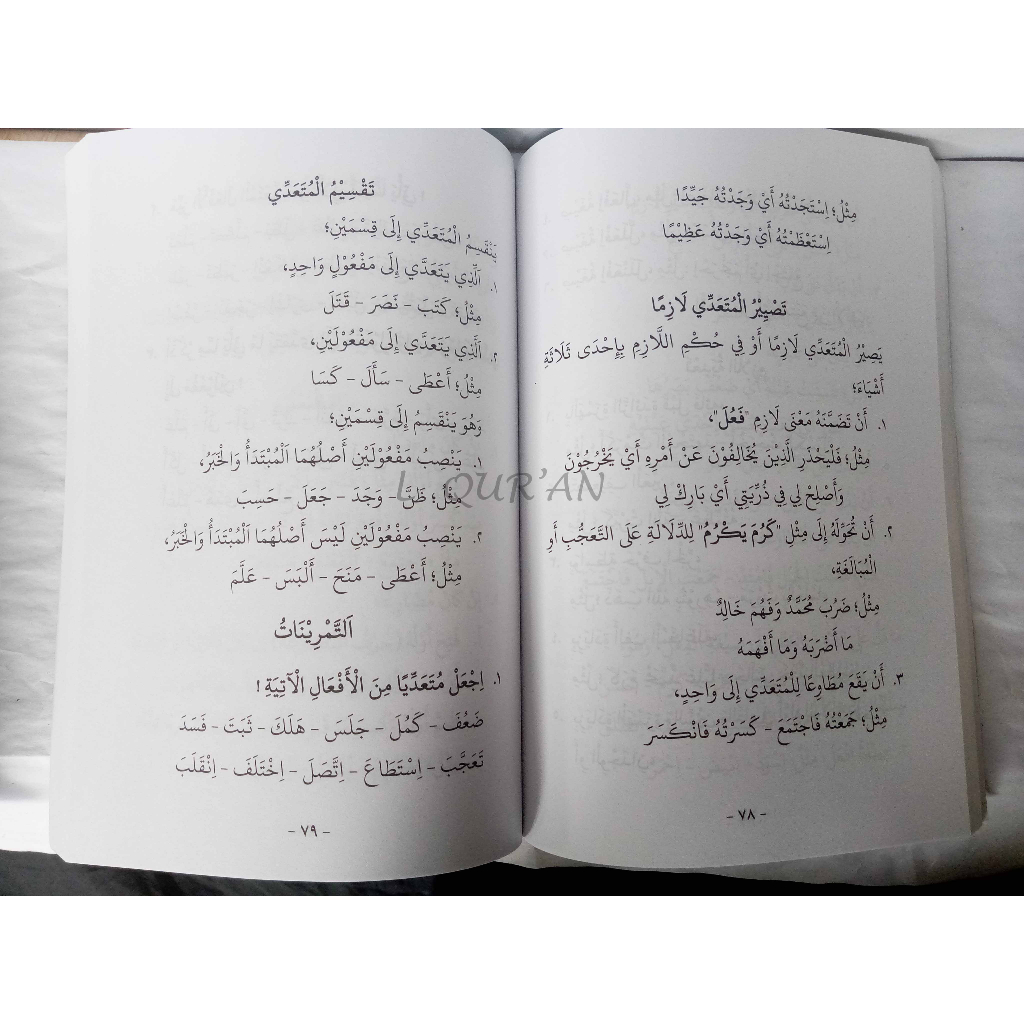 مِثْلُ؛ اِسْتَجَدْتُهُ أَيْ وَجَدْتُهُ جَيِّدًا
اِسْتَعْظَمْتُهُ أَيْ وَجَدْتُهُ عَظِيْمًا
تَصْيِيْرُ الْمُتَعَدِّي لَازِمًا
يَصِيْرُ الْمُتَعَدِّي لَازِمًا أَوْ فِي حُكْمِ اللَّازِمِ بِإِحْدَى ثَلَاثَةِ
أَشْيَاءَ؛
١. أَنْ تَضَمَّنَهُ مَعْنَى لَازِمِ "فَعُلَ"،
مِثْلُ؛ فَلْيَحْذَرِ الَّذِيْنَ يُخَالِفُوْنَ عَنْ أَمْرِهِ أَيْ يَخْرُجُوْنَ
وَأَصْلِحْ لِي فِي ذُرِّيَتِي أَيْ بَارِكْ لِي
٢. أَنْ تُحَوِّلَهُ إِلَى مِثْلِ "كَرُمَ يَكْرُمُ" لِلدِّلَالَةِ عَلَى التَّعَجُّبِ أَوِ
الْمُبَالَغَةِ،
مِثْلُ؛ ضَرُبَ مُحَمَّدٌ وَفَهُمَ خَالِدٌ
مَا أَضْرَبَهُ وَمَا أَفْهَمَهُ
٣. أَنْ يَقَعَ مُطَاوِعًا لِلْمُتَعَدِّي إِلَى وَاحِدٍ،
مِثْلُ؛ جَمَعْتُهُ فَاجْتَمَعَ – كَسَرْتُهُ فَانْكَسَرَ
- ٧٨ -
تَقْسِيْمُ الْمُتَعَدِّي
يَنْقَسِمُ الْمُتَعَدِّي إِلَى قِسْمَيْنِ؛
١. اَلَّذِي يَتَعَدَّي إِلَى مَفْعُوْلٍ وَاحِدٍ،
مِثْلُ؛ كَتَبَ – نَصَرَ – قَتَلَ
٢. اَلَّذِي يَتَعَدَّي إِلَى مَفْعُوْلَيْنِ،
مِثْلُ؛ أَعْطَى – سَأَلَ – كَسَا
وَهُوَ يَنْقَسِمُ إِلَى قِسْمَيْنِ؛
١. يَنْصِبُ مَفْعُوْلَيْنِ أَصْلُهُمَا اَلْمُبْتَدَأُ وَالْخَبَرُ،
مِثْلُ؛ ظَنَّ – وَجَدَ – جَعَلَ – حَسِبَ
٢. يَنْصِبُ مَفْعُوْلَيْنِ لَيْسَ أَصْلُهُمَا اَلْمُبْتَدَأُ وَالْخَبَرُ،
مِثْلُ؛ أَعْطَى – مَنَحَ – أَلْبَسَ – عَلَّمَ
اَلتَّمْرِيْنَاتُ
١. اِجْعَلْ مُتَعَدِّيًا مِنَ الْأَفْعَالِ الْآتِيَةِ!
ضَعُفَ – كَمُلَ – جَلَسَ – هَلَكَ – ثَبَتَ – فَسَدَ
تَعَجَّبَ – اِسْتَطَاعَ – اِتَّصَلَ – اِخْتَلَفَ – اِنْقَلَبَ
- ٧٩ -
QUR'AN